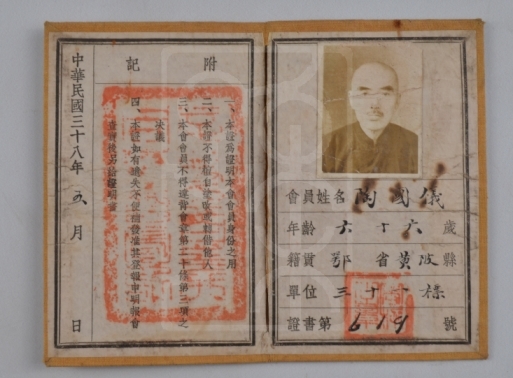 附記
一、本證為證明本會會員身份之用
二、本證不得擅自塗改或轉借他人
三、本會會員不得違背會章第二十條第三項之
決議
四、本證如有遺失不
中華民國三十八年 五月 日
會員姓名 陶國儀
年齡 六十六 歲
籍貫 鄂 省 黃陂 縣
單位 三十一
證書第 619 號